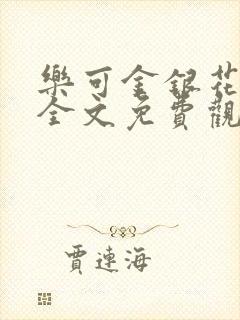 樂可金銀花
全文免費觀
賈連海